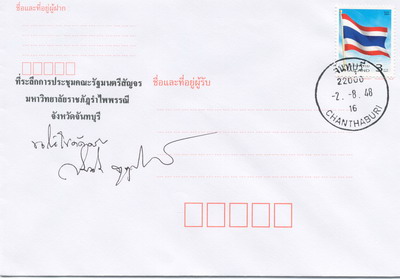 ชื่อและที่อยู่ผู้ฝาก
ที่ระลึกการประชุมคณะรัฐมนตรีสัญจร
มหาวิทยาลัยราชภัฏรำไพพรรณี
จังหวัดจันทบุรี
ชื่อและที่อยู่ผู้รับ
จันทบุรี
22000
-2.-8.48
16
CHANTHABURI